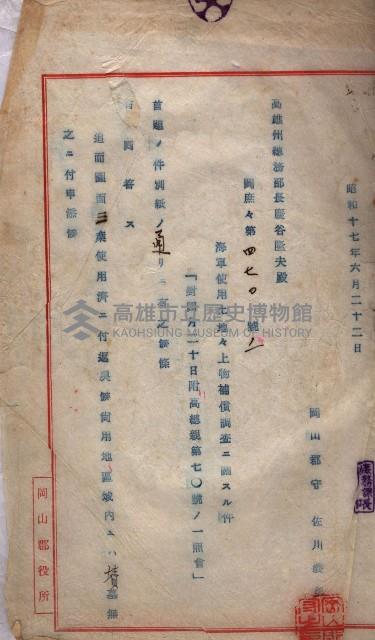 昭和十七年六月二十二日
岡山郡守 佐川
高雄州總務部長慶谷隆夫殿
岡庶々第四七〇號ノ一
海軍使用土地々上物補償調查ニ關スル件
「月二十日附高總親第七〇號ノ一照會」
首題ノ件別紙ノ通リニ有之候條
ス
追而圖面三葉使用濟ニ付返戾候尚用地區域內ニハ墳墓無
之ニ付申添候
岡山郡役所
高雄市立歷史博物館
KAOHSIUNG MUSEUM OF HISTORY